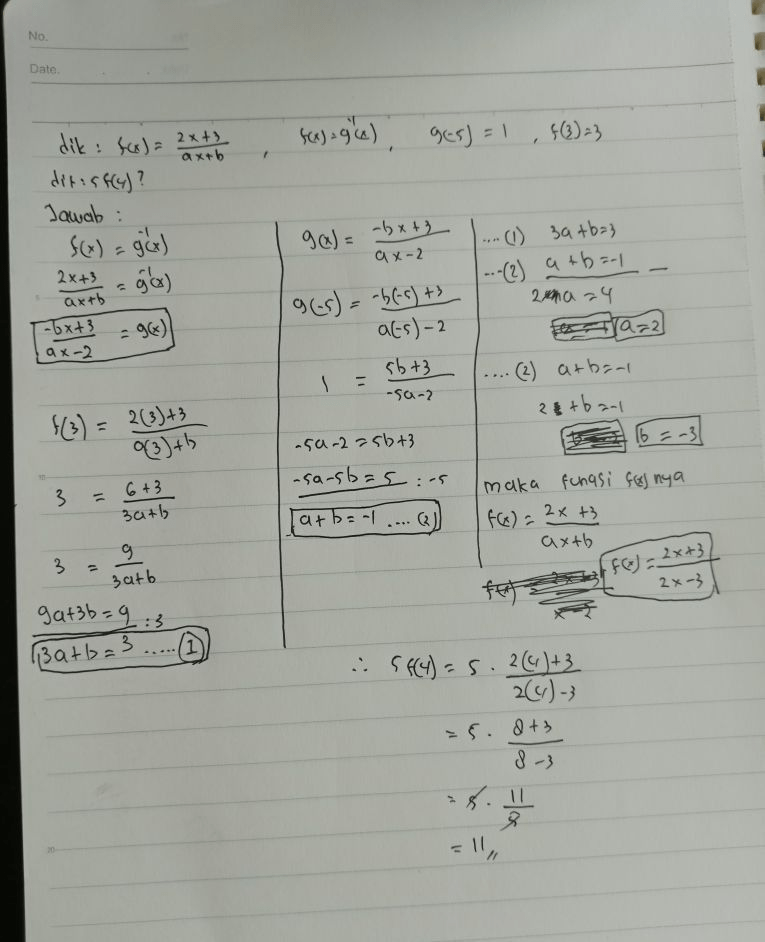 No.
Date.
dik : f(x) = 2x+3 / ax+b , f(x) = g⁻¹(x) , g(-5) = 1 , f(3) = 3
dit : 5 f(4) ?
Jawab :
f(x) = g⁻¹(x)
2x+3 / ax+b = g⁻¹(x)
-bx+3 / ax-2 = g(x)
f(3) = 2(3)+3 / a(3)+b
3 = 6+3 / 3a+b
3 = 9 / 3a+b
9a+3b = 9 : 3
3a+b = 3 ..... (1)
g(x) = -bx+3 / ax-2
g(-5) = -b(-5)+3 / a(-5)-2
1 = 5b+3 / -5a-2
-5a-2 = 5b+3
-5a-5b = 5 : -5
a+b = -1 .... (2)
....(1) 3a+b=3
....(2) a+b=-1 -
2a = 4
a=2
....(2) a+b=-1
2+b=-1
b = -3
maka fungsi f(x) nya
f(x) = 2x+3 / ax+b
f(x) = 2x+3 / 2x-3
∴ 5 f(4) = 5 . 2(4)+3 / 2(4)-3
= 5 . 8+3 / 8-3
= 5 . 11 / 5
= 11 //
20